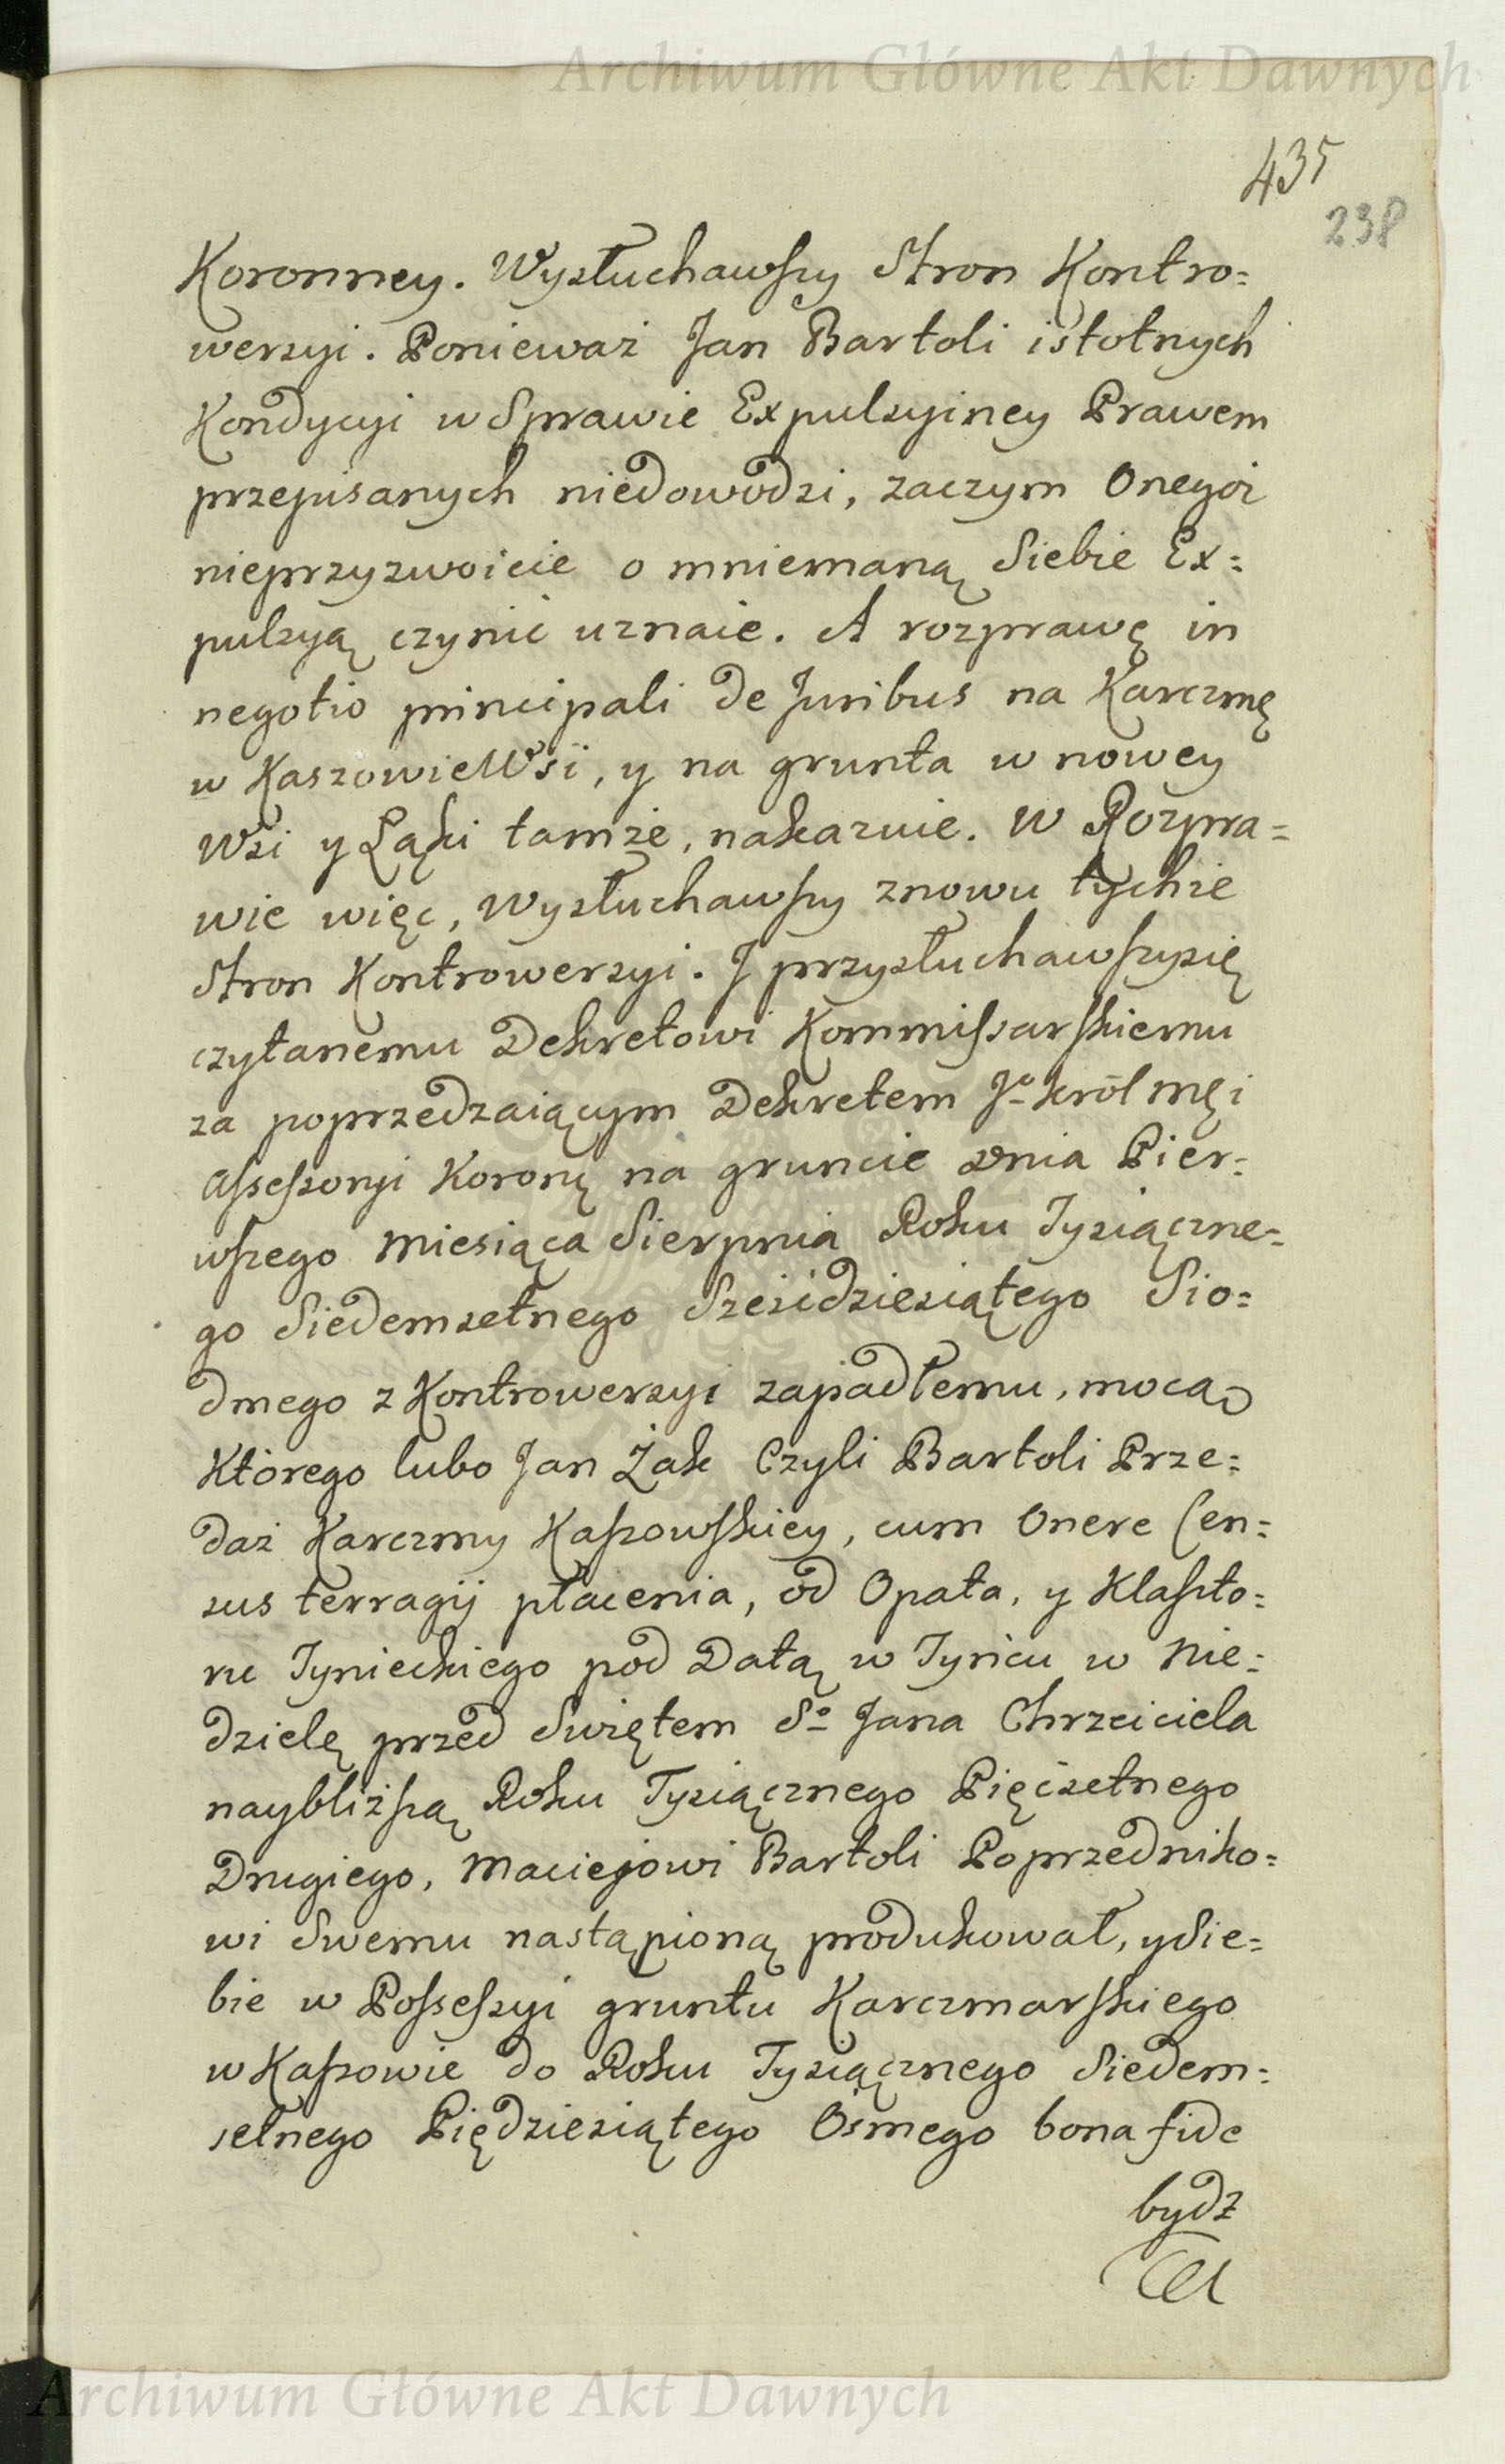 Archiwum Główne Akt Dawnych
435
238
Koronney. Wysłuchawszy Stron Kontro=
wersyi. Ponieważ Jan Bartoli istotnych
Kondycyi w Sprawie Expulsyiney Prawem
przepisanych niedowodzi, zaczym Onegoż
nieprzyzwoicie o mniemaną Siebie Ex=
pulsyą czynić uznaie. A rozprawę in
negotio principali de Juribus na Karczmę
w Kaszowie Wsi, y na grunta w nowey
Wsi y Łąki tamże, nakazuie. W Rozpra=
wie więc, Wysłuchawszy znowu tychże
Stron Kontrowersyi. J przysłuchawszysię
czytanemu Dekretowi Kommissarskiemu
za poprzedzaiącym Dekretem Jo Król Męi
Assessoryi Koronę na gruncie Dnia Pier=
wszego Miesiąca Sierpnia Roku Tysiączne=
go Siedemsetnego Sześćdziesiątego Sio=
dmego z Kontrowersyi zapadłemu, mocą
Którego lubo Jan Żak Czyli Bartoli Prze=
daż Karczmy Kaszowskiey, cum Onere Cen=
sus terragij płacenia, od Opata, y Klaszto=
ru Tynieckiego pod Datą w Tyńcu w Nie=
dzielę przed Swiętem So Jana Chrzciciela
naybliższą Roku Tysiącznego Pięćsetnego
Drugiego, Maciejowi Bartoli Poprzedniko=
wi Swemu nastąpioną produkował, y Sie=
bie w Possessyi gruntu Karczmarskiego
w Kaszowie do Roku Tysiącznego Siedem=
setnego Pięćdziesiątego Osmego bona fide
bydz
Archiwum Główne Akt Dawnych